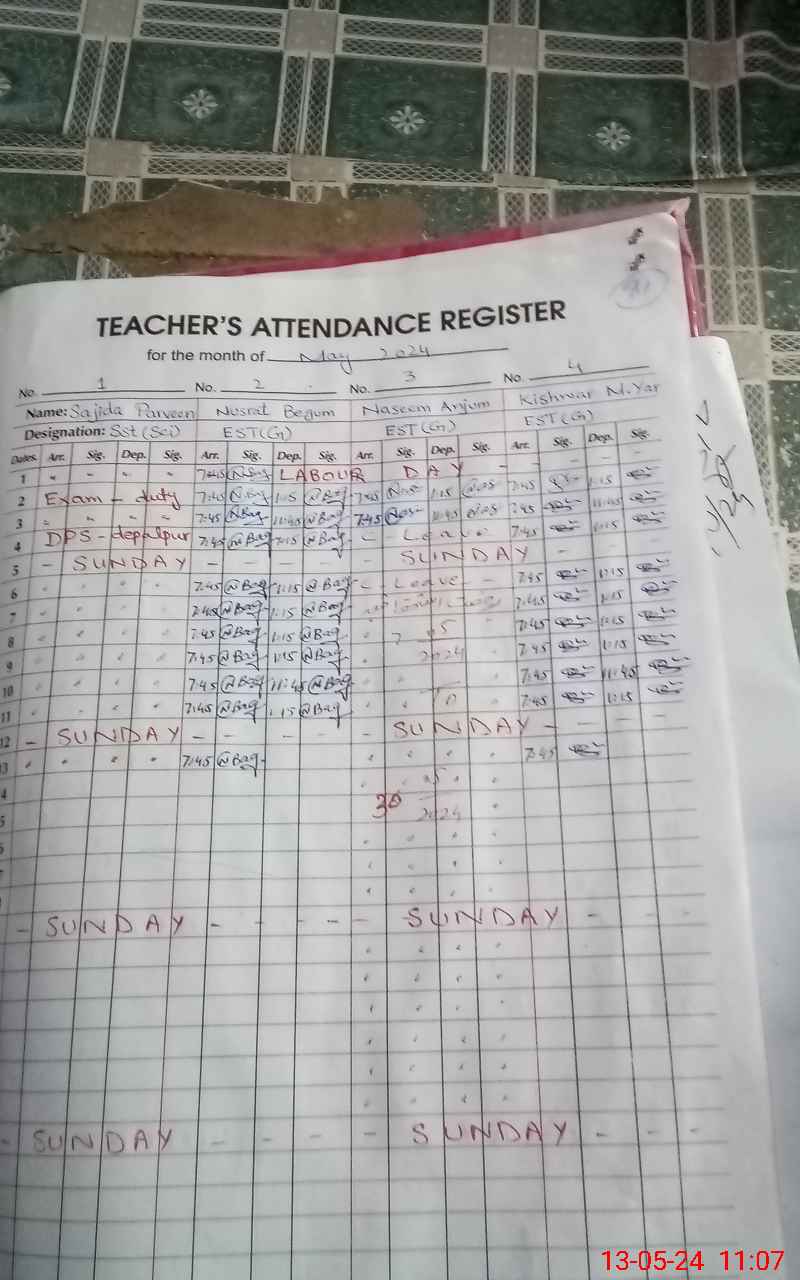 TEACHER'S ATTENDANCE REGISTER
for the month of May 2024
No. 1 No. 2 No. 3 No. 4
Name: Sajida Parveen Nusrat Begum Naseem Anjum Kishwar M.Yar
Designation: Sst (Sci) EST(G) EST(G) EST(G)
Dates Arr. Sig. Dep. Sig. Arr. Sig. Dep. Sig. Arr. Sig. Dep. Sig. Arr. Sig. Dep. Sig.
1 " " " " 7:45 @Bag LABOUR DAY - - - -
2 Exam - duty 7:45 @Bag 1:15 @Bag 7:45 1:15 7:45 1:15
3 " " " " 7:45 @Bag 11:45 @Bag 7:45 11:45 7:45 11:45
4 DPS - depalpur 7:45 @Bag 1:15 @Bag - Leave - 7:45 1:15
5 - SUNDAY - - - - - SUNDAY - - -
6 " " " " 7:45 @Bag 1:15 @Bag - Leave - 7:45 1:15
7 " " " " 7:45 @Bag 1:15 @Bag 7:45 1:15
8 " " " " 7:45 @Bag 1:15 @Bag " 7 05 7:45 1:15
9 " " " " 7:45 @Bag 1:15 @Bag " 2024 7:45 1:15
10 " " " " 7:45 @Bag 11:45 @Bag " 7:45 11:45
11 " " " " 7:45 @Bag 1:15 @Bag " To " 7:45 1:15
12 - SUNDAY - - - - - SUNDAY - - - -
13 " " " " 7:45 @Bag " " " " 7:45
4 " " 05 " "
5 30 2024 "
- SUNDAY - - - - - SUNDAY - - -
- SUNDAY - - - - SUNDAY - - -
13-05-24 11:07